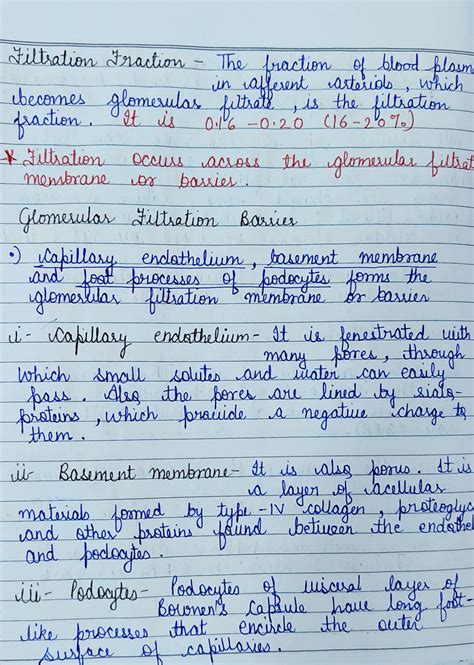 Filtration Fraction - The fraction of blood plasm
in afferent arteriols, which
becomes glomerular filtrate, is the filtration
fraction. It is 0.16 - 0.20 (16-20%)
* Filtration occurs across the glomerular filtrat
membrane or barrier.
Glomerular Filtration Barrier
•) Capillary endothelium, basement membrane
and foot processes of podocytes forms the
glomerular filtration membrane or barrier
i- Capillary endothelium - It is fenestrated with
many pores, through
which small solutes and water can easily
pass. Also the pores are lined by sialo-
proteins, which provide a negative charge to
them.
ii- Basement membrane - It is also porus. It is
a layer of acellular
materials formed by type-IV collagen, proteoglyc
and other proteins found between the endothel
and podocytes.
iii- Podocytes - Podocytes of visceral layer of
Bowmen's capsule have long foot-
like processes that encircle the outer
surface of capillaries.